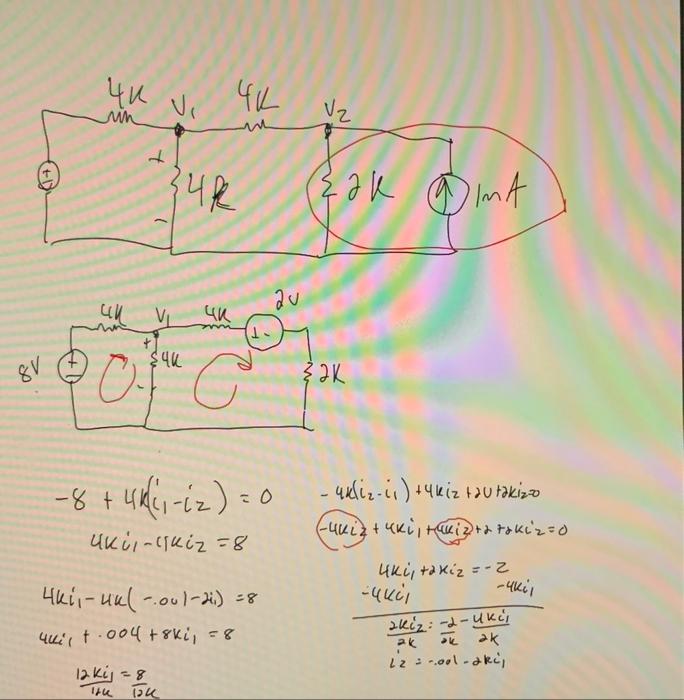 4K V1 4K V2
+ 4K - 2K 1mA
+ -
2V
4K V1 4K
+ -
8V + - + 4K - 2K
-8 + 4K(i1-i2) = 0
4Ki1-4Ki2 = 8
4Ki1-4K(-.001-2i1) = 8
4Ki1 + .004 + 8Ki1 = 8
12Ki1/12K = 8/12K
-4K(i2-i1)+4Ki2+2V+2Ki2=0
-4Ki2+4Ki1+4Ki2+2+2Ki2=0
4Ki1+2Ki2 = -2
-4Ki1 -4Ki1
2Ki2/2K = -2/2K - 4Ki1/2K
i2 = -.001-2Ki1